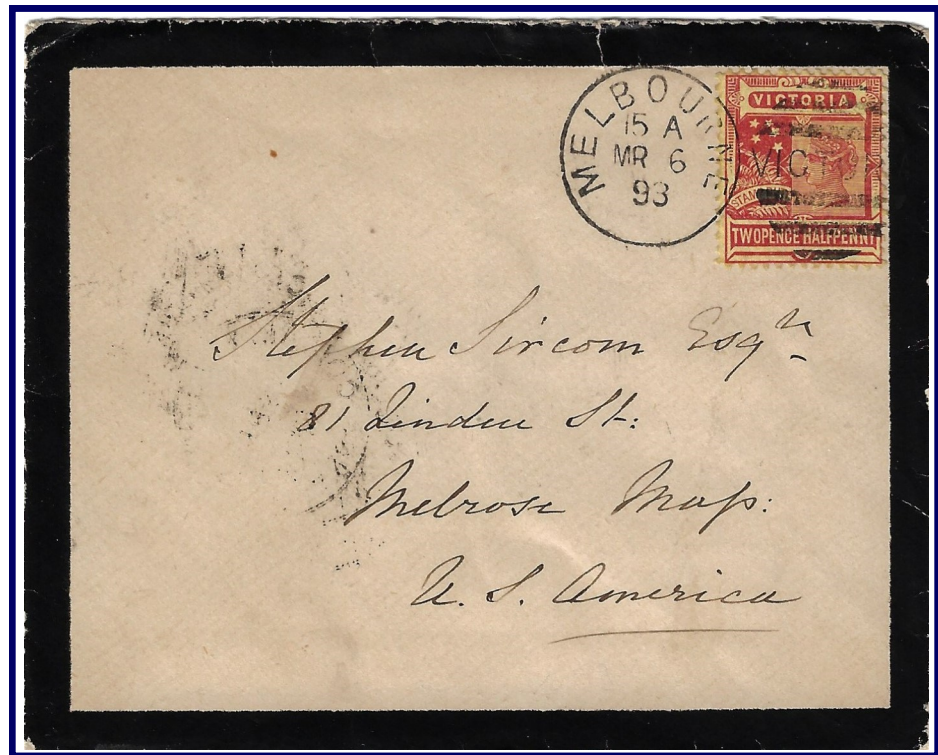 MELBOURNE
15 A
MR 6
93
VICTORIA
VICTOR
STAMP
TWOPENCE HALFPENNY
Stephen Sircom Esqr
81 Linden St:
Melrose Mass:
U. S. America